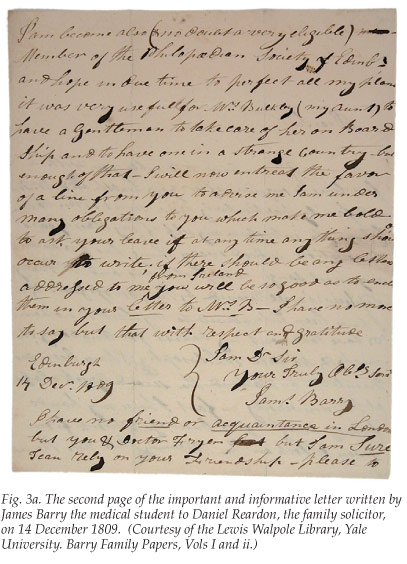 I am become also (no doubt a very eligible)
Member of the Philopædian Society of Edinbʳ
and hope in due time to perfect all my plans
it was very usefull for Mʳˢ Bulkley (my aunt) to
have a Gentleman to take care of her on Board
Ship and to have one in a strange Country - but
enough of that - I will now entreat the favor
of a line from you to advise me I am under
many obligations to you which make me bold
to ask your leave if at any time any thing shou
occur to write, if there should be any letters
from Ireland
addressed to me you will be so good as to enclo
them in your letter to Mʳˢ B - I have no more
to say but that with respect and gratitude
I am Dʳ Sir
Edinburgh
Your Truly Obᵗ Servᵗ
14 Decʳ 1809
Jamˢ Barry
I have no friend or acquaintance in London
but you & Doctor Fryer but I am Sure
I can rely on your Friendship - please to
Fig. 3a. The second page of the important and informative letter written by
James Barry the medical student to Daniel Reardon, the family solicitor,
on 14 December 1809. (Courtesy of the Lewis Walpole Library, Yale
University. Barry Family Papers, Vols I and ii.)